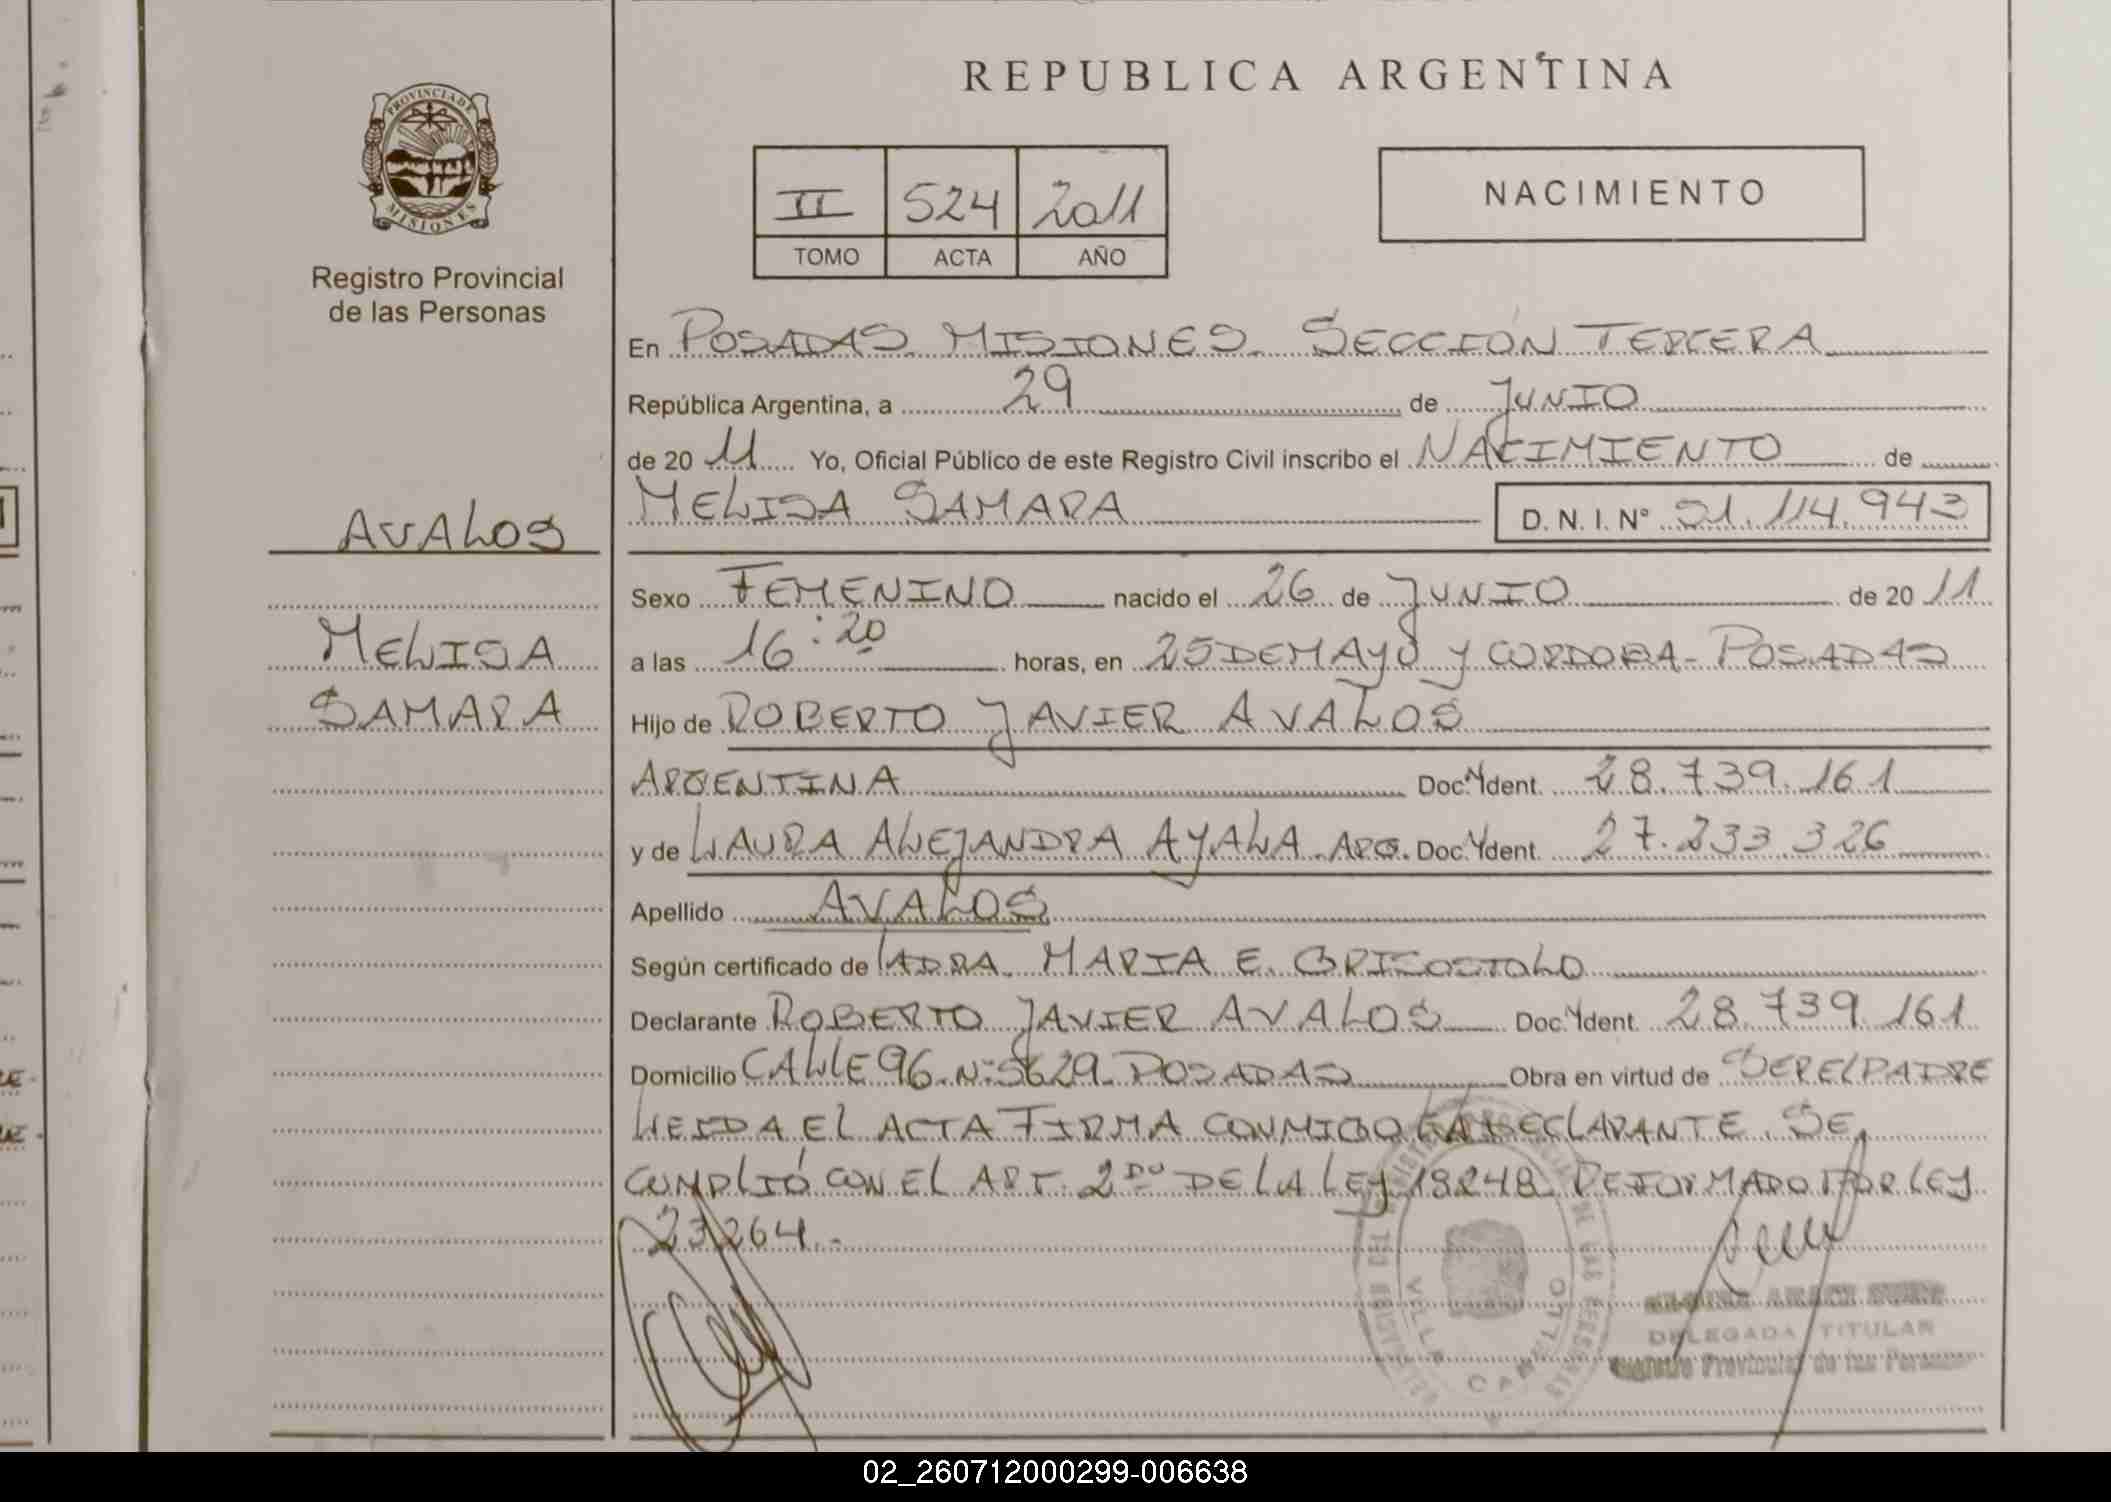 REPUBLICA ARGENTINA
PROVINCIA DE MISIONES
Registro Provincial
de las Personas
II 524 2011
TOMO ACTA AÑO
NACIMIENTO
En POSADAS MISIONES. SECCIÓN TERCERA
República Argentina, a 29 de JUNIO
de 20 11 Yo, Oficial Público de este Registro Civil inscribo el NACIMIENTO de
MELISA SAMARA D. N. I. Nº 51.114.943
AVALOS
MELISA
SAMARA
Sexo FEMENINO nacido el 26 de JUNIO de 20 11
a las 16:20 horas, en 25 DE MAYO Y CORDOBA - POSADAS
Hijo de ROBERTO JAVIER AVALOS
ARGENTINA Doc. Ident. 28.739.161
y de LAURA ALEJANDRA AYALA. ARG. Doc. Ident. 27.233.326
Apellido AVALOS
Según certificado de LA DRA. MARIA E.
Declarante ROBERTO JAVIER AVALOS Doc. Ident. 28.739.161
Domicilio CALLE 96. Nº 5629. POSADAS Obra en virtud de SER EL PADRE
LEIDA EL ACTA FIRMA CONMIGO DECLARANTE. SE
CUMPLIÓ CON EL ART. 2DO DE LA LEY 18248 REFORMADO POR LEY
23264.-
VILLA CABELLO
DELEGADA TITULAR
Registro Provincial de las Personas
02_260712000299-006638